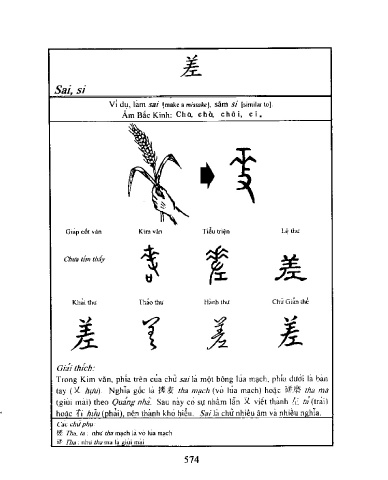 差
Sai, si
Ví dụ, làm sai [make a mistake], sâm si [similar to].
Âm Bắc Kinh: Cha, chà, chāi, ci.
Giáp cốt văn Kim văn Tiểu triện Lệ thư
Chưa tìm thấy
差
Khải thư Thảo thư Hành thư Chữ Giản thể
差 差 差 差
Giải thích:
Trong Kim văn, phía trên của chữ sai là một bông lúa mạch, phía dưới là bàn
tay (又 hựu). Nghĩa gốc là 搓麦 tha mạch (vò lúa mạch) hoặc 磋磨 tha ma
(giũi mài) theo Quảng nhã. Sau này có sự nhầm lẫn 又 viết thành 左 tả (trái)
hoặc 右 hữu (phải), nên thành khó hiểu. Sai là chữ nhiều âm và nhiều nghĩa.
Các chữ phụ
搓 Tha, ta: như tha mạch là vò lúa mạch
磋 Tha: như tha ma là giũi mài
574